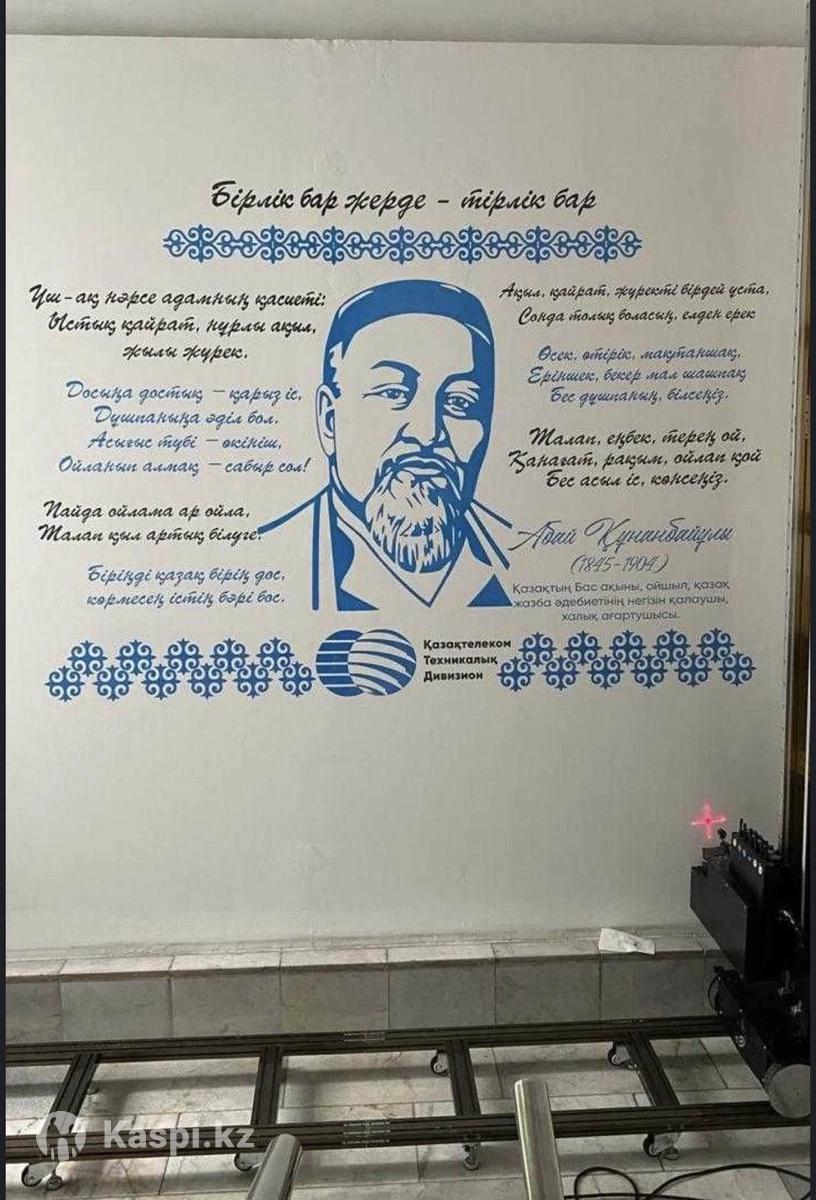 Бірлік бар жерде - тірлік бар
Үш-ақ нәрсе адамның қасиеті:
Ыстық қайрат, нұрлы ақыл,
жылы жүрек.
Досыңа достық – қарыз іс,
Дұшпаныңа әділ бол.
Асығыс түбі – өкініш,
Ойланып алмақ – сабыр сол!
Пайда ойлама ар ойла,
Талап қыл артық білуге.
Біріңді қазақ бірің дос,
көрмесең істің бәрі бос.
Ақыл, қайрат, жүректі бірдей ұста,
Сонда толық боласың, елден ерек
Өсек, өтірік, мақтаншақ,
Еріншек, бекер мал шашпақ
Бес дұшпаның, білсеңіз.
Талап, еңбек, терең ой,
Қанағат, рақым, ойлап қой
Бес асыл іс, көнсеңіз.
Абай Құнанбайұлы
(1845-1904)
Қазақтың Бас ақыны, ойшыл, қазақ
жазба әдебиетінің негізін қалаушы,
халық ағартушысы.
Қазақтелеком
Техникалық
Дивизион
Kaspi.kz